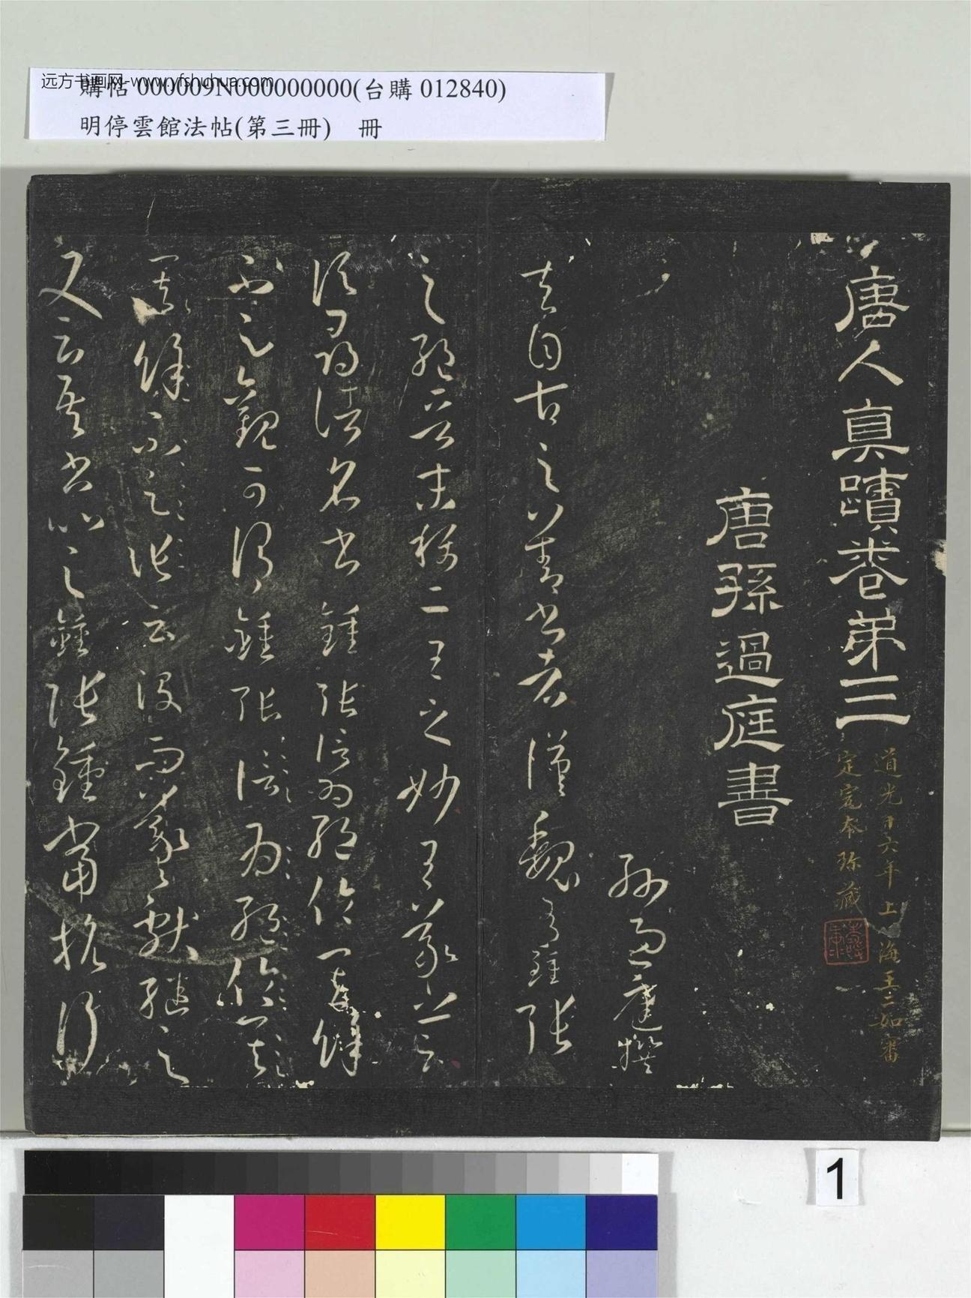 远方书画网-www.yfshuhua.com
購帖 000009N000000000(台購 012840)
明停雲館法帖(第三冊) 冊
唐人真蹟卷弟三
道光十六年上海王二如審
定完本珍藏
唐孫過庭書
孫過庭撰
夫自古之善書者漢魏有鍾張
之絕晉末稱二王之妙王羲之云
頃尋諸名書鍾張信為絕倫其餘
不足觀可謂鍾張信為絕倫其
餘不足觀云沒而羲獻繼之
又云吾書比之鍾張鍾當抗行
1